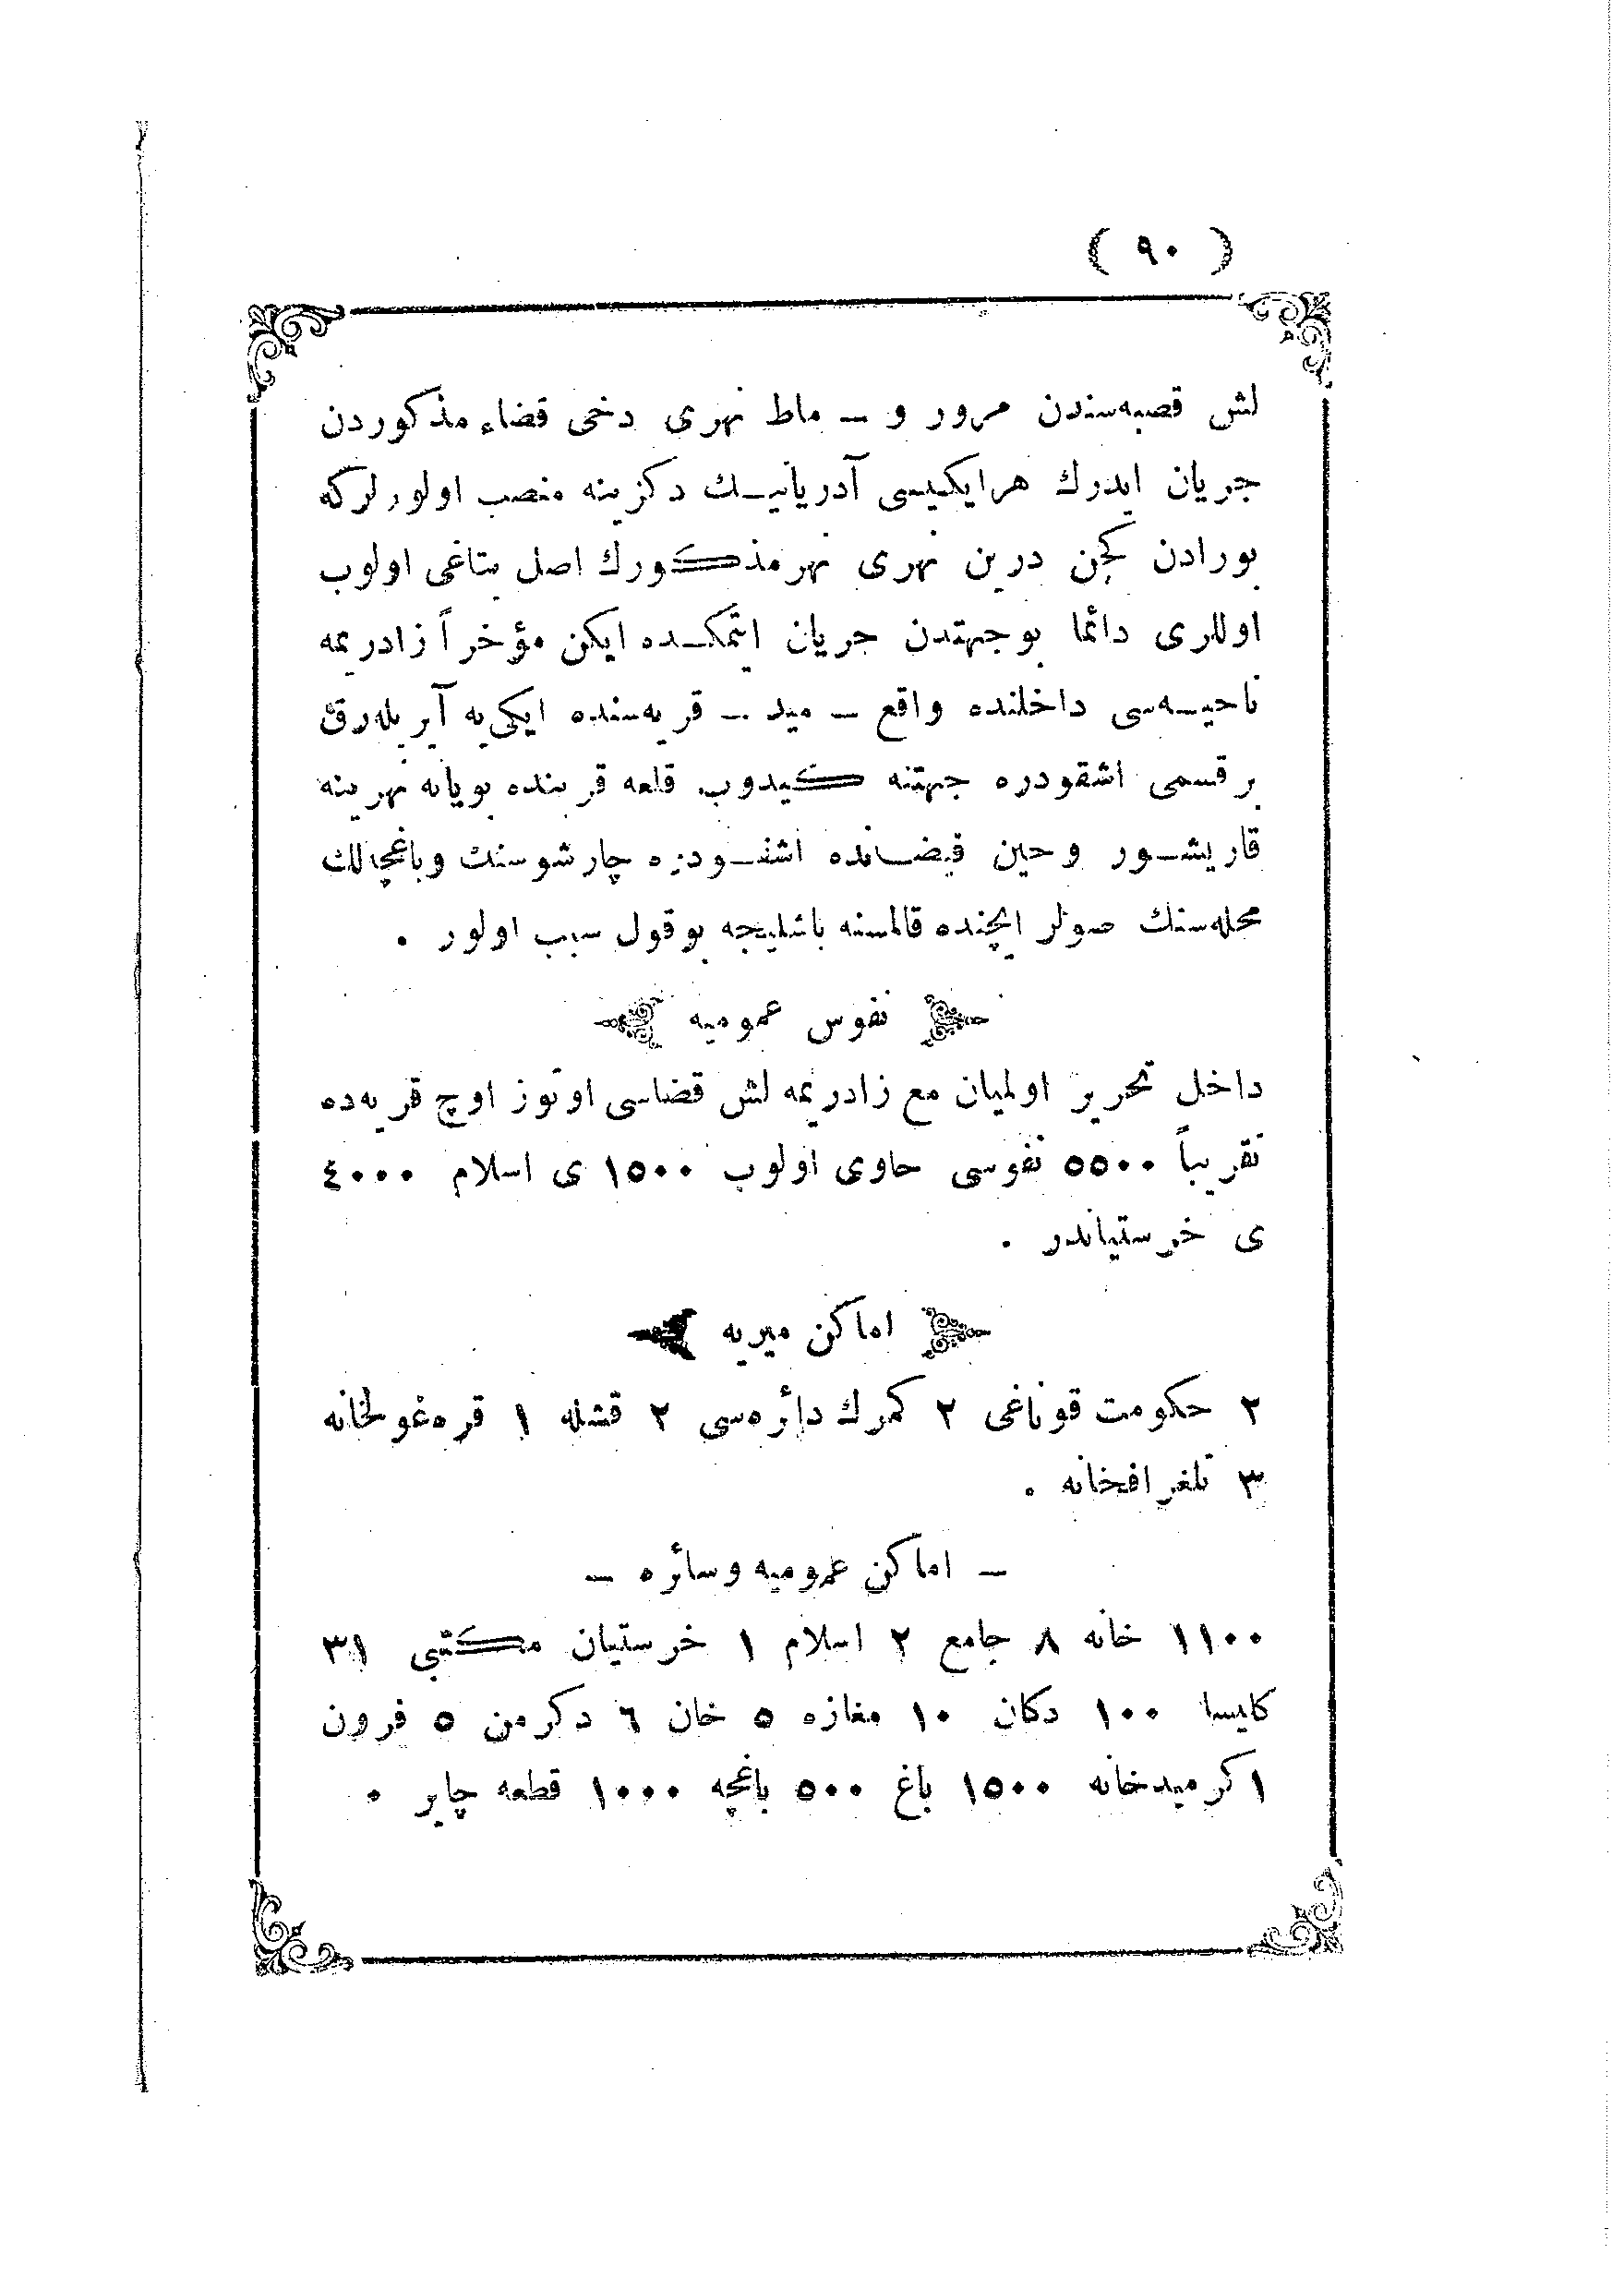 ( ٩٠ )
لش قصبه‌سندن مرور و – ماط نهری دخی قضاء مذكوردن
جریان ایدرك هرایكیسی آدریاتیك دكزینه منصب اولورلركه
بورادن كچن درین نهری نهر مذكورك اصل یتاغی اولوب
اوللری دائما بوجهتدن جریان ایتمكده ایكن مؤخراً زادریمه
ناحیه‌سی داخلنده واقع – مید – قریه‌سنده ایكی‌یه آیریله‌رق
برقسمی اشقودره جهتنه كیدوب قلعه قربنده بویانه نهرینه
قاریشور وحین فیضانده اشقودره چارشوسنك وباغچه‌لك
محله‌سنك صولر ایچنده قالمسنه باشلیجه بوقول سبب اولور .
نفوس عمومیه
داخل تحریر اولمیان مع زادریمه لش قضاسی اوتوز اوچ قریه‌ده
تقریباً ٥٥٠٠ نفوسی حاوی اولوب ١٥٠٠ ی اسلام ٤٠٠٠
ی خرستیاندر .
اماكن میریه
٢ حكومت قوناغی ٢ كمرك دائره‌سی ٢ قشله ١ قره‌غولخانه
٣ تلغرافخانه .
– اماكن عمومیه وسائره –
١١٠٠ خانه ٨ جامع ٢ اسلام ١ خرستیان مكتبی ٣١
كلیسا ١٠٠ دكان ١٠ مغازه ٥ خان ٦ دكرمن ٥ فرون
١ كرمیدخانه ١٥٠٠ باغ ٥٠٠ باغچه ١٠٠٠ قطعه چایر .